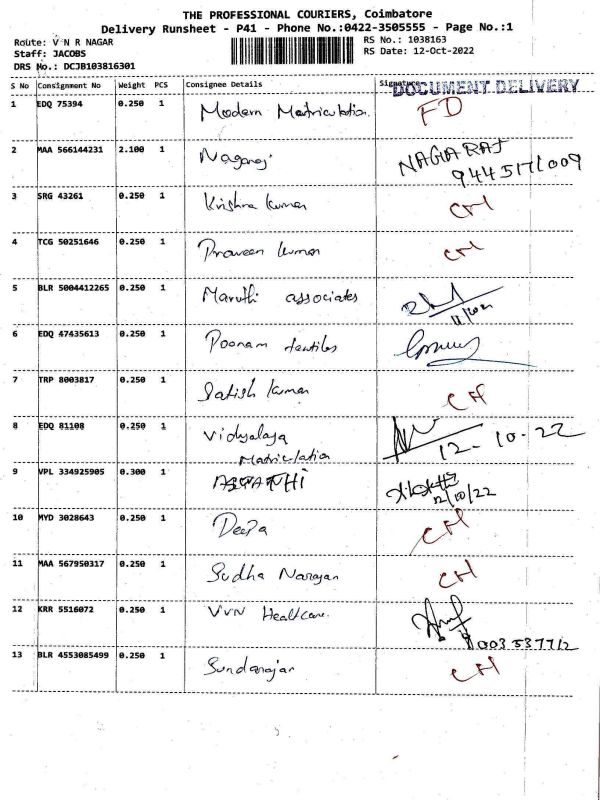 THE PROFESSIONAL COURIERS, Coimbatore
Delivery Runsheet - P41 - Phone No.:0422-3505555 - Page No.:1
Route: V N R NAGAR
RS No.: 1038163
Staff: JACOBS
RS Date: 12-Oct-2022
DRS No.: DCJB103816301
S No Consignment No Weight PCS Consignee Details Signature
DOCUMENT DELIVERY
1 EDQ 75394 0.250 1 Modern Matriculation. FD
2 MAA 566144231 2.100 1 Nagaraj NAGARAJ
9445171009
3 SRG 43261 0.250 1 Krishna kumar CH
4 TCG 50251646 0.250 1 Praveen kumar CH
5 BLR 5004412265 0.250 1 Maruthi associates
6 EDQ 47435613 0.250 1 Poonam textiles
7 TRP 8003817 0.250 1 Satish kumar CH
8 EDQ 81108 0.250 1 Vidyalaya
Matriculation 12-10-22
9 VPL 334925905 0.300 1
12/10/22
10 MYD 3028643 0.250 1 Deepa CH
11 MAA 567950317 0.250 1 Sudha Narayan CH
12 KRR 5516072 0.250 1 VVN Healtcare.
13 BLR 4553085499 0.250 1 Sundarajan CH